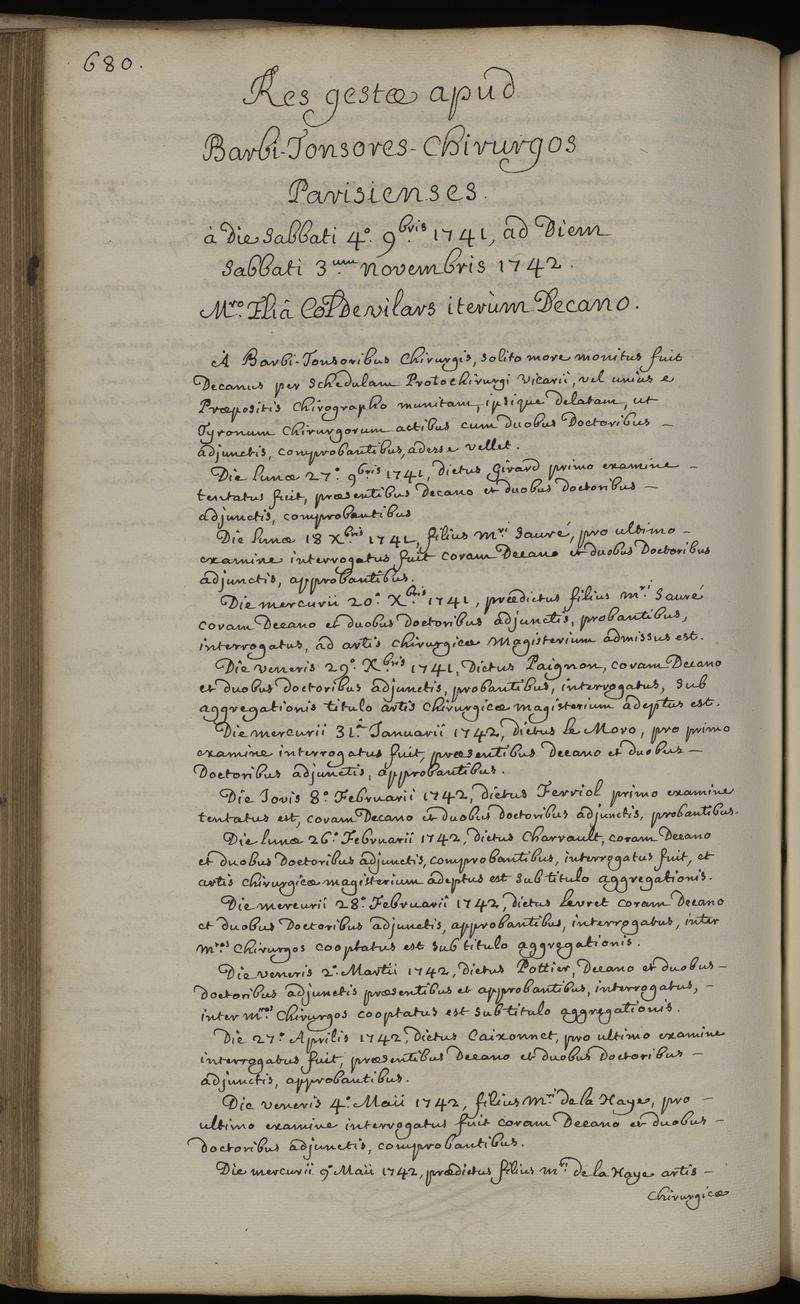 680.
Res gestæ apud
Barbi-Tonsores-Chirurgos
Parisienses.
à Die Sabbati 4º. 9bris 1741, ad Diem
Sabbati 3um Novembris 1742.
Mro. Eliâ Col De vilars iterùm Decano.
A Barbi-Tonsoribus Chirurgis, solito more monitus fuit
Decanus per Schedulam Protochirurgi vicarii, vel unius e
Præpositis Chirographo munitam, ipsique delatam, ut
Tyronum Chirurgorum actibus cum duobus Doctoribus –
adjunctis, comprobantibus, adesse vellet.
Die Lunæ 27º. 9bris 1741, dictus Girard primo examine –
tentatus fuit, præsentibus Decano et duobus Doctoribus –
adjunctis, comprobantibus
Die Lunæ 18 Xbris 1741, filius Mri Sauré, pro ultimo –
examine interrogatus fuit coram Decano et duobus Doctoribus
adjunctis, approbantibus.
Die mercurii 20ª. Xbris 1741, prædictus filius Mri Sauré
coram Decano et duobus Doctoribus adjunctis, probantibus,
interrogatus, ad artis chirurgicæ Magisterium admissus est.
Die veneris 29º. Xbris 1741, Dictus Paignon, coram Decano
et duobus doctoribus adjunctis, probantibus, interrogatus, sub
aggregationis titulo artis Chirurgicæ magisterium adeptus est.
Die mercurii 31ª. Januarii 1742, dictus Le Moro, pro primo
examine interrogatus fuit, præsentibus Decano et duobus –
Doctoribus adjunctis, approbantibus.
Die Jovis 8º. Februarii 1742, dictus Ferriol primo examine
tentatus est, coram Decano et duobus doctoribus adjunctis, probantibus.
Die Lunæ 26ª. Februarii 1742, Dictus Charvault, coram Decano
et duobus Doctoribus adjunctis, comprobantibus, interrogatus fuit, et
artis chirurgicæ magisterium adeptus est sub titulo aggregationis.
Die mercurii 28ª. Februarii 1742, dictus Levret coram Decano
et duobus Doctoribus adjunctis, approbantibus, interrogatus, inter
Mros Chirurgos cooptatus est sub titulo aggregationis.
Die veneris 2ª. Martii 1742, dictus Pottier, Decano et duobus –
doctoribus adjunctis præsentibus et approbantibus, interrogatus, –
inter Mros Chirurgos cooptatus est sub titulo aggregationis.
Die 27ª Aprilis 1742, dictus Caixonnet, pro ultimo examine
interrogatus fuit, præsentibus Decano et duobus doctoribus –
adjunctis, approbantibus.
Die veneris 4ª. Maii 1742, filius Mri de la Haye, pro –
ultimo examine interrogatus fuit coram Decano et duobus –
Doctoribus adjunctis, comprobantibus.
Die mercurii 9ª Maii 1742, prædictus filius Mri de la Haye artis –
Chirurgicæ